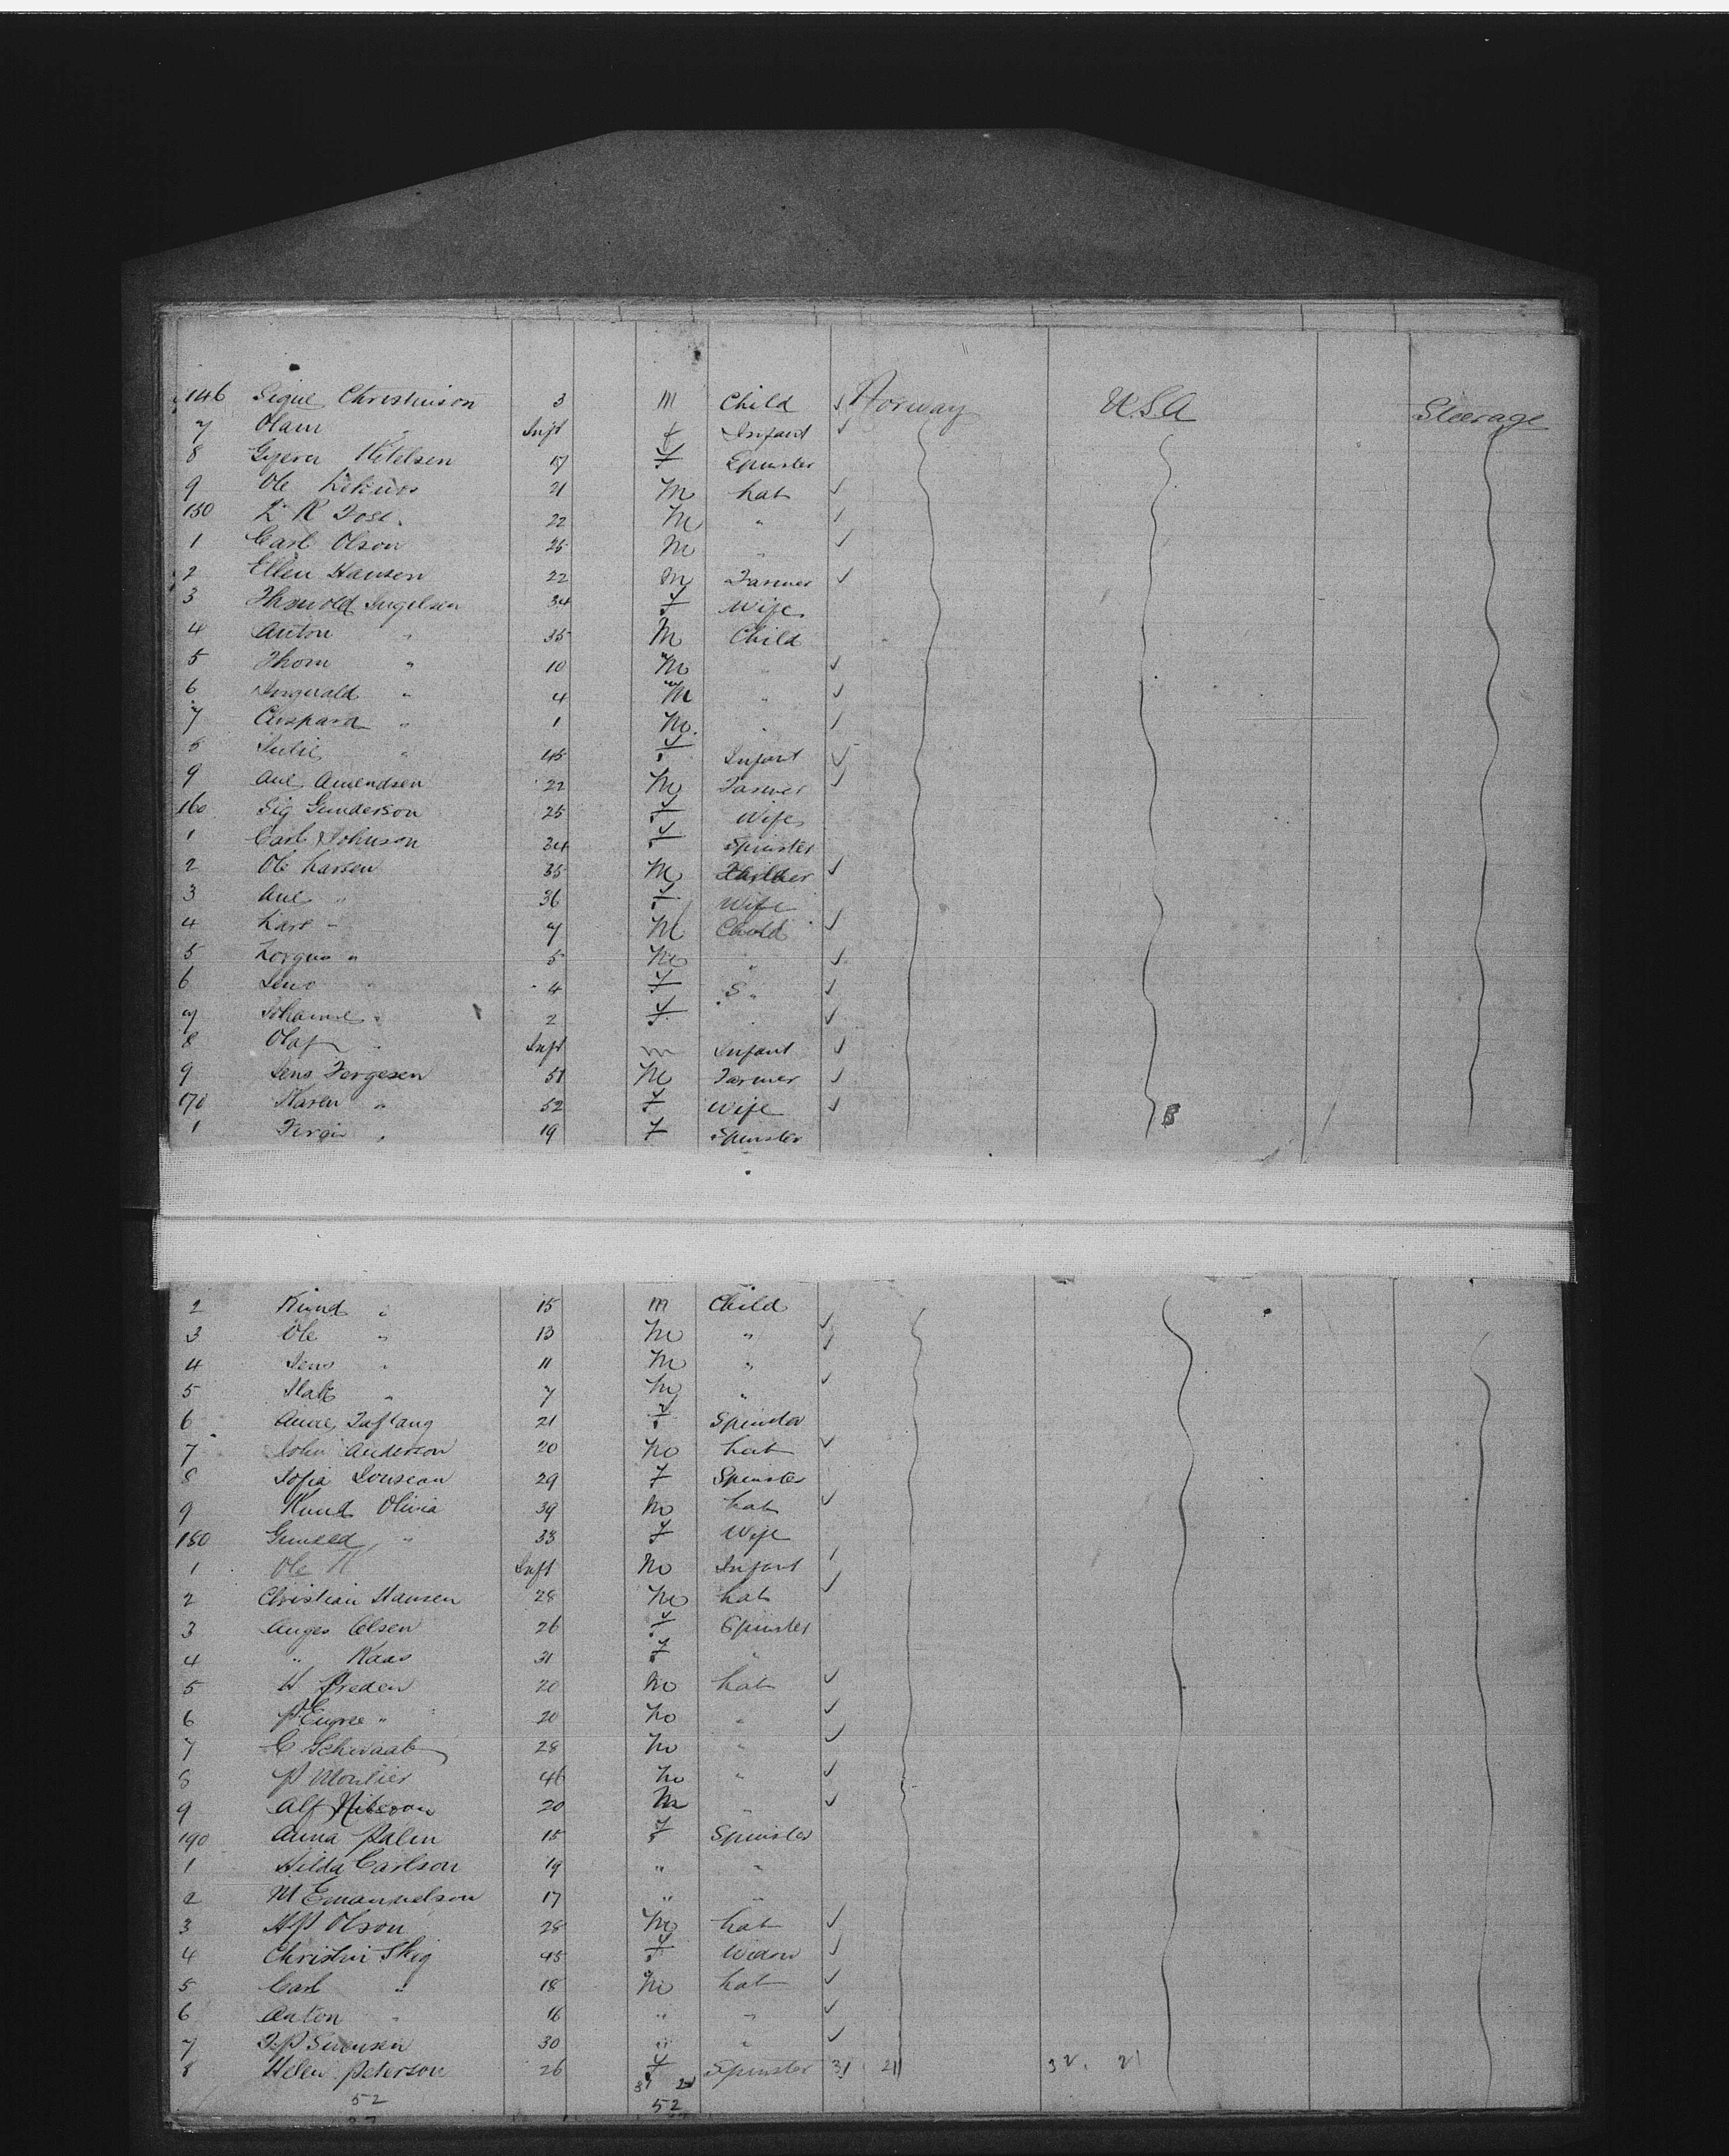 146 Signe Christinson 3 m Child ✓ Norway USA Steerage
7 Olam " Inft f Infant ✓
8 Kitelsen 17 f Spinster
9 Ole 21 M Lab ✓
150 22 M " ✓
1 Carl Olson 25 M " ✓
2 Ellen Hansen 22 M Farmer ✓
3 Ingelsen 34 f Wife
4 Anton " 35 M Child
5 Thom " 10 M ✓
6 " 4 M " ✓
7 Caspara " 1 M " ✓
8 Julie " 45 f Infant ✓
9 Ane Amendsen 22 M Farmer ✓
160 Sig Gunderson 25 f Wife
1 Carl Johnson 34 f Spinster
2 Ole Larsen 35 M ✓
3 Ane " 36 f Wife
4 Lars " 7 M Child ✓
5 " 5 M " ✓
6 Jens " 4 f S " ✓
7 Johanne " 2 f " ✓
8 Olaf " Inft m Infant ✓
9 Jens Torgesen 51 M Farmer ✓
170 Karen " 52 f Wife ✓
1 " 19 f Spinster
2 Knud " 15 m Child
3 Ole " 13 M " ✓
4 Jens " 11 M " ✓
5 " 7 M " ✓
6 Anne 21 f Spinster
7 John Anderson 20 M Lab ✓
8 Sofia 29 f Spinster
9 Knud Olivia 39 M Lab ✓
180 " 33 f Wife
1 Ole K Inft M Infant ✓
2 Christian Hansen 28 M Lab ✓
3 Anges Olsen 26 f Spinster
4 " Kaas 31 f "
5 H Preden 20 M Lab ✓
6 " 20 M " ✓
7 C Schwaab 28 M " ✓
8 P Moulier 46 M " ✓
9 Alf 20 M " ✓
190 Anna Palm 15 f Spinster
1 Hilda Carlson 19 " "
2 M Emanuelson 17 " "
3 A.P. Olson 28 M Lab ✓
4 Christin Skig 45 f Widow ✓
5 Carl " 18 M Lab ✓
6 Anton " 16 " " ✓
7 P Swensen 30 " " ✓
8 Helen Peterson 26 f Spinster 31 21 32 21
31 21
52 52